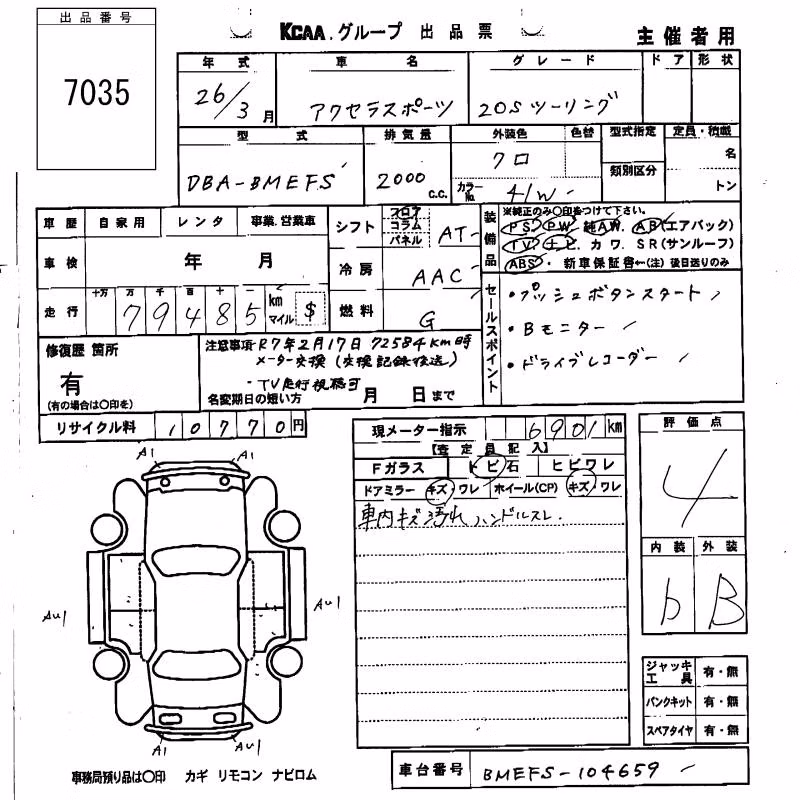 出品番号
7035
KCAA.グループ 出品票
主催者用
年式 車名 グレード ドア 形状
26/3月 アクセラスポーツ 20Sツーリング
型式 排気量 外装色 色替 型式指定 定員・積載
DBA-BMEFS 2000 C.C. クロ 名
類別区分
カラーNo. 41W トン
車歴 自家用 レンタ 事業.営業車
車検 年 月
走行 十万 万 千 百 十 一
79485 km マイル $
シフト フロア コラム パネル AT
冷房 AAC
燃料 G
装備品
※純正のみ○印をつけて下さい。
PS. PW. 純AW. AB(エアバック)
TV. ナビ. カワ. SR(サンルーフ)
ABS. 新車保証書←(注)後日送りのみ
セールスポイント
・プッシュボタンスタート
・Bモニター
・ドライブレコーダー
修復歴 箇所
有
(有の場合は○印を)
注意事項・R7年2月17日 72584km時
メーター交換(交換記録後送)
・TV走行視聴可
名変期日の短い方 月 日まで
リサイクル料 10770円
現メーター指示 6901km
【査定員記入】
Fガラス トビ石 ヒビワレ
ドアミラー キズ・ワレ ホイール(CP) キズ・ワレ
車内キズ汚れ ハンドルスレ.
評価点
4
内装 外装
b B
A1 A1
AU1 AU1
A1 A1
ジャッキ工具 有・無
パンクキット 有・無
スペアタイヤ 有・無
事務局預り品は○印 カギ リモコン ナビロム
車台番号 BMEFS-104659